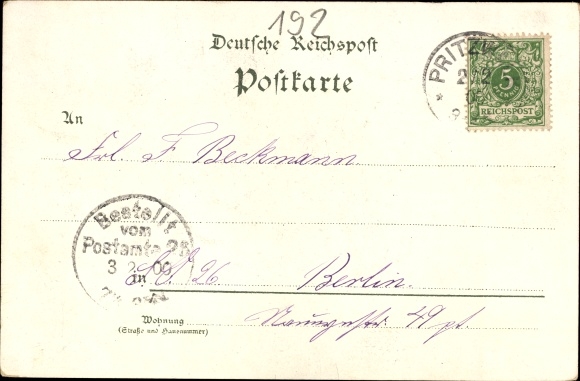 192
Deutsche Reichspost
Postkarte
PRITZW
2 12
5
PFENNIG
REICHSPOST
An
Frl. F. Beckmann
Bestellt
vom
Postamte
3 2 00
in
S.O. 26 Berlin.
49 pt.
Wohnung
(Straße und Hausnummer)